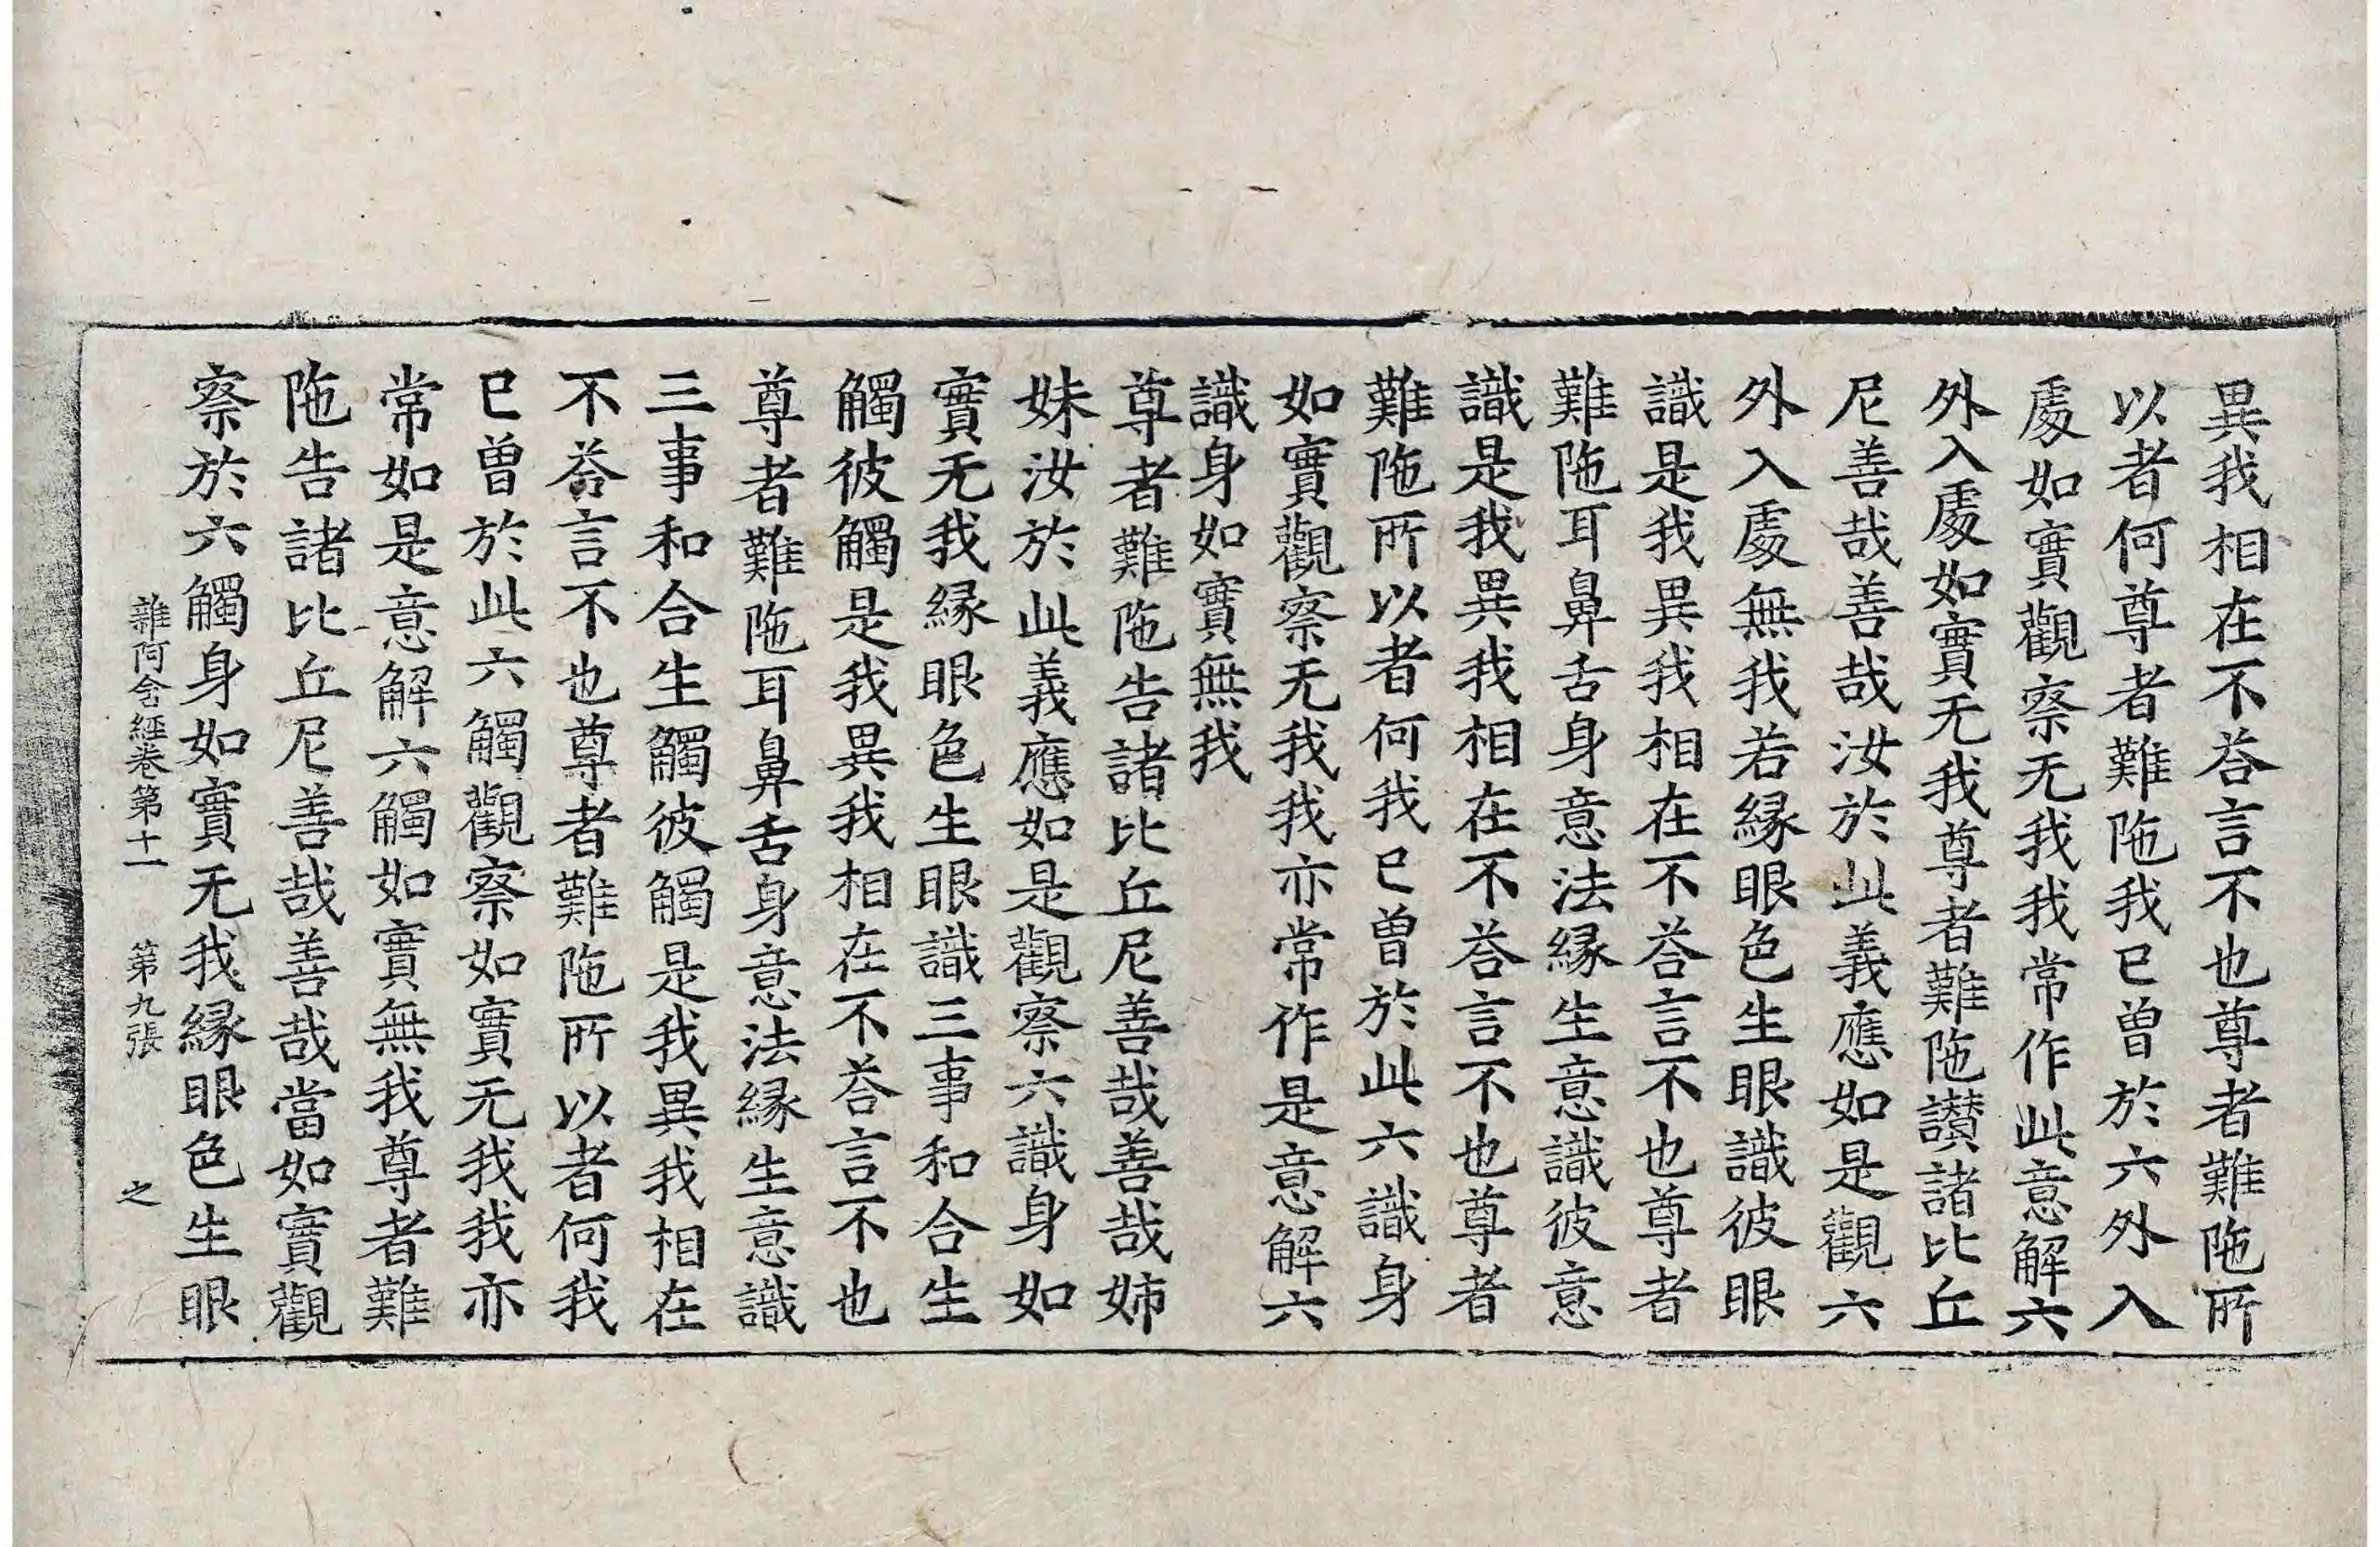 異我相在不荅言不也尊者難陁所
以者何尊者難陁我已曽於六外入
處如實觀察无我我常作此意解六
外入處如實无我尊者難陁讃諸比丘
尼善哉善哉汝於此義應如是觀六
外入處無我若緣眼色生眼識彼眼
識是我異我相在不荅言不也尊者
難陁耳鼻舌身意法緣生意識彼意
識是我異我相在不荅言不也尊者
難陁所以者何我已曽於此六識身
如實觀察无我我亦常作是意解六
識身如實無我
尊者難陁告諸比丘尼善哉善哉姉
妹汝於此義應如是觀察六識身如
實无我緣眼色生眼識三事和合生
觸彼觸是我異我相在不荅言不也
尊者難陁耳鼻舌身意法緣生意識
三事和合生觸彼觸是我異我相在
不荅言不也尊者難陁所以者何我
已曽於此六觸觀察如實无我我亦
常如是意解六觸如實無我尊者難
陁告諸比丘尼善哉善哉當如實觀
察於六觸身如實无我緣眼色生眼
雜阿含經卷第十一 第九張 之